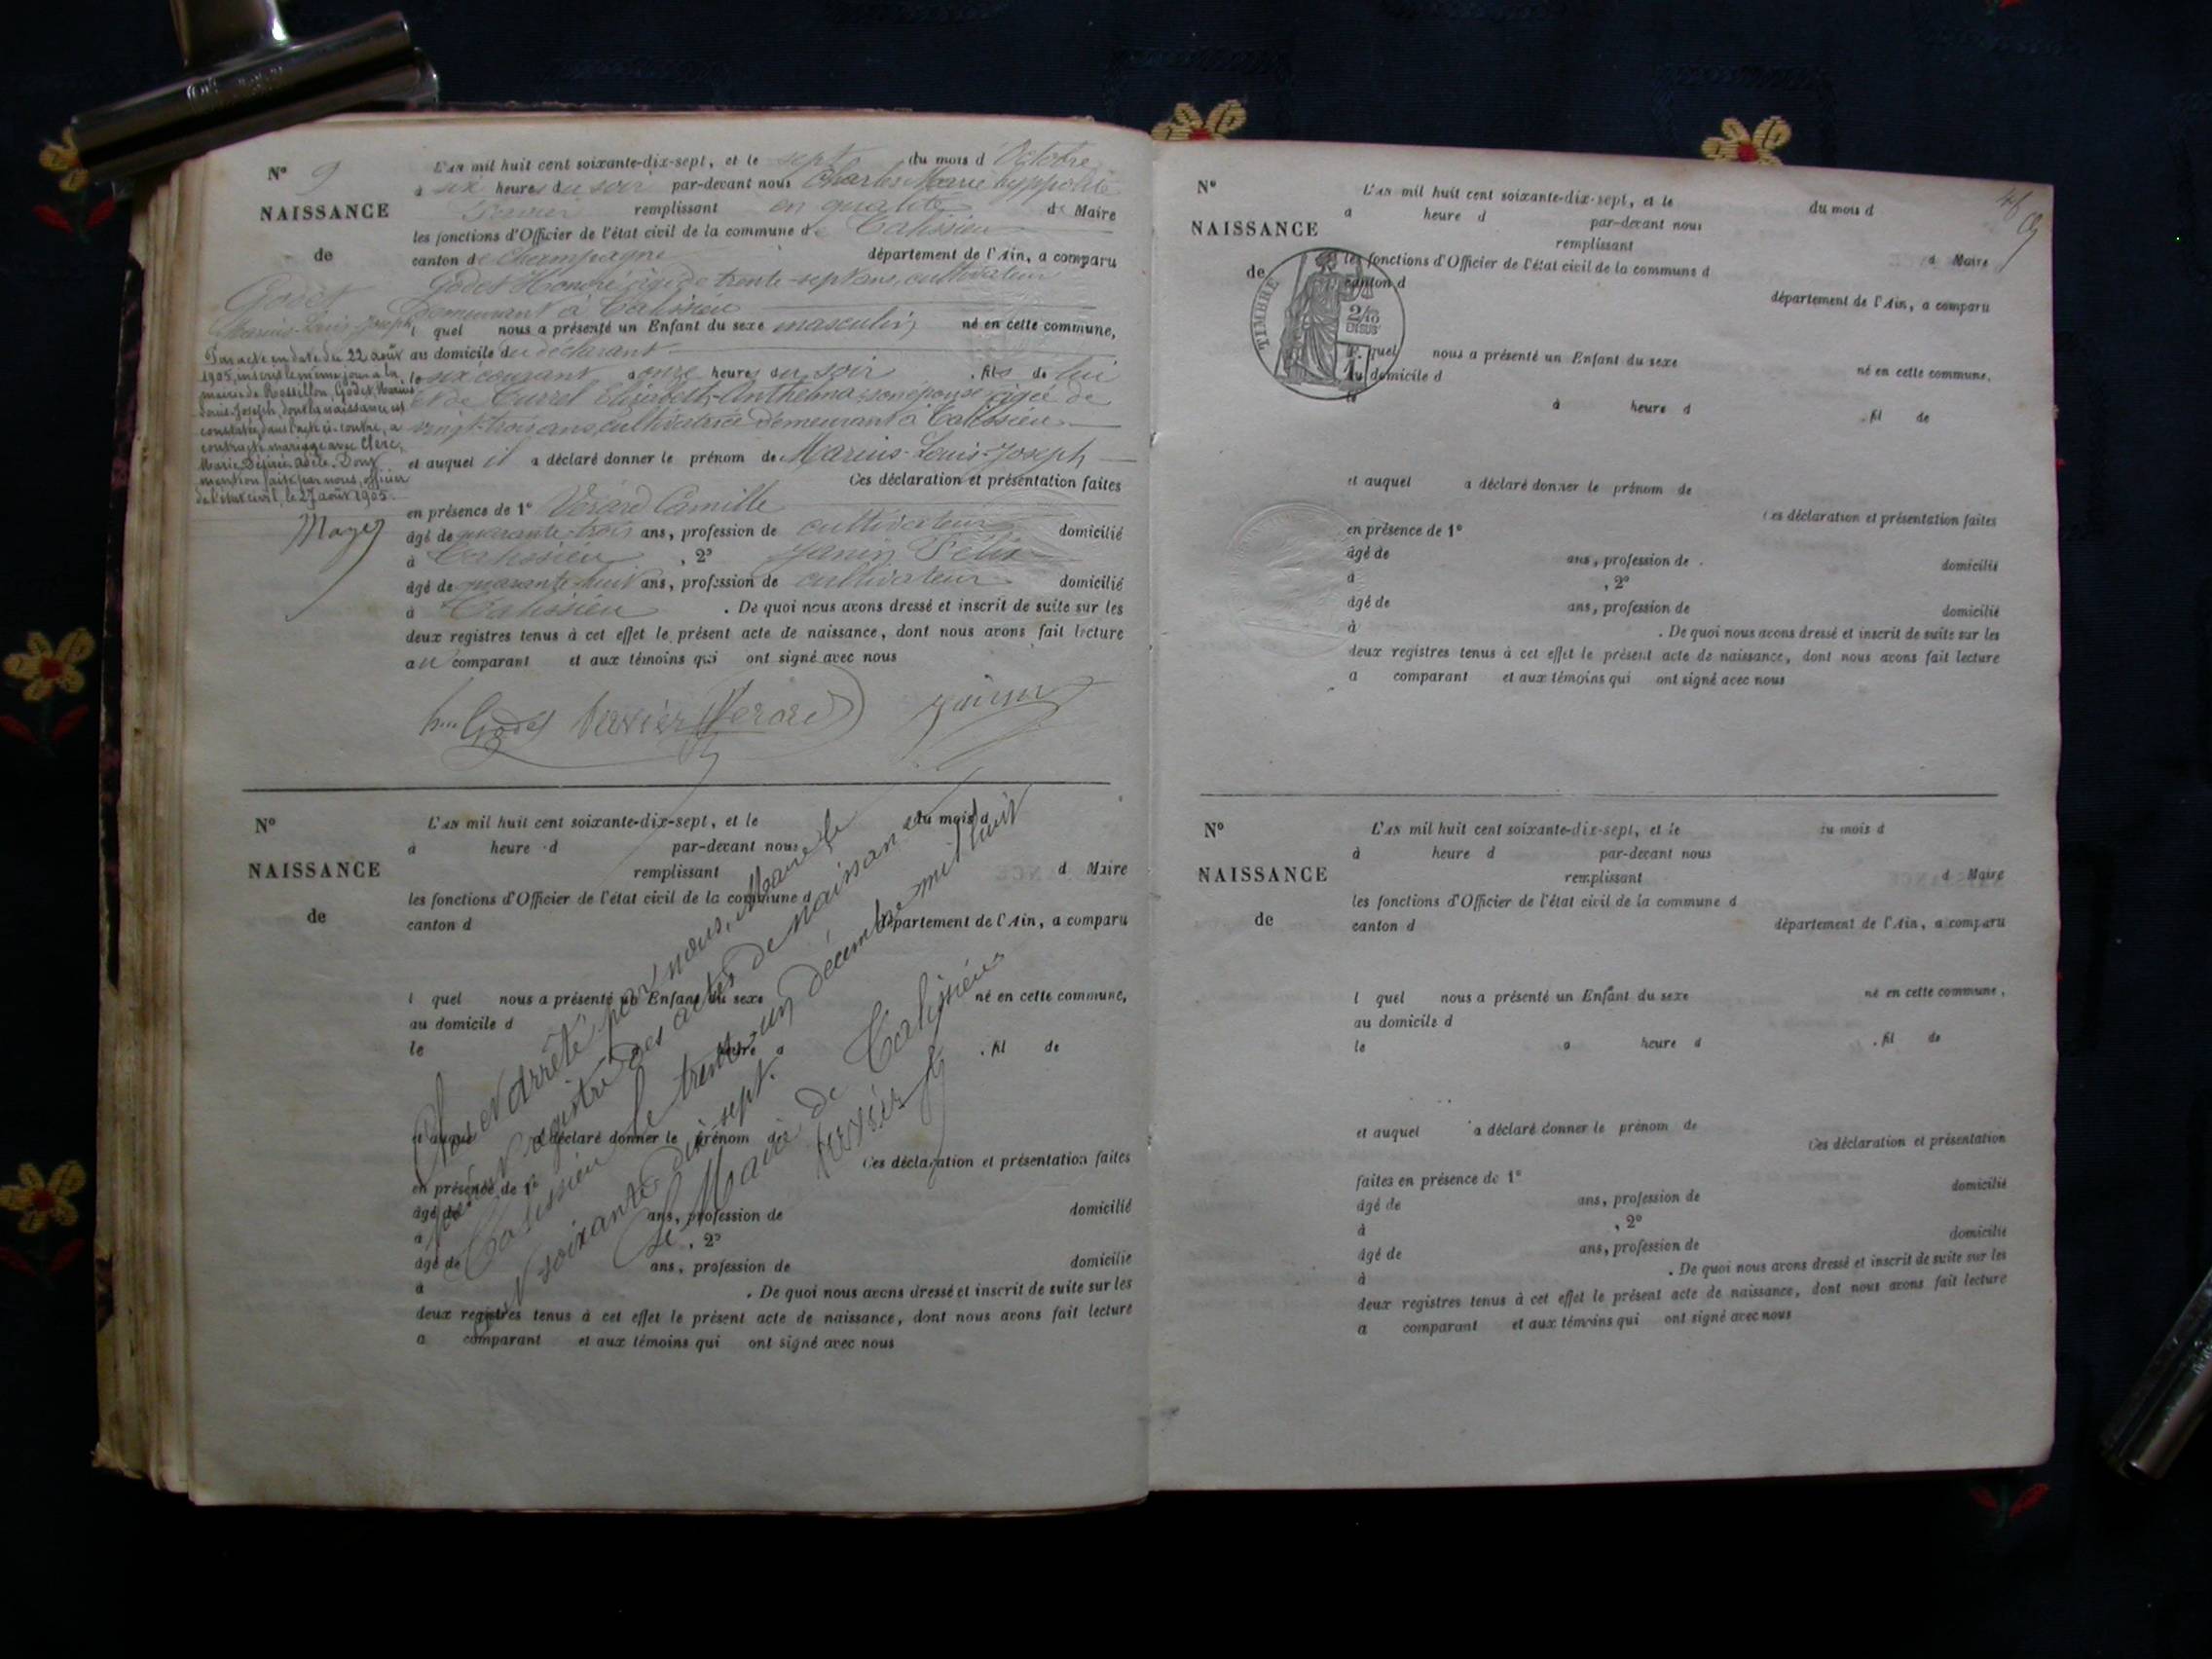 N° 9
NAISSANCE
de
Godet
Marius-Louis-Joseph
Par acte en date du 22 août
1905, inscrit le même jour à la
mairie de Rossillon, Godet, Marius
Louis-Joseph, dont la naissance est
constatée dans l'acte ci-contre, a
contracté mariage avec Clerc,
Marie Désirée Adèle. Dont
mention faite par nous, officier
de l'état civil, le 27 août 1905.
L'AN mil huit cent soixante-dix-sept, et le sept du mois d'Octobre
à six heures du soir par-devant nous Charles Marie hyppolite
remplissant en qualité de Maire
les fonctions d'Officier de l'état civil de la commune de Talissieu
canton de Champagne département de l'Ain, a comparu
Godet Honoré âgé de trente-sept ans, cultivateur
demeurant à Talissieu
l quel nous a présenté un Enfant du sexe masculin, né en cette commune,
au domicile du déclarant
le six courant a onze heures du soir . fils de lui
et de Currel Elisabeth-Anthelma son épouse âgée de
vingt-trois ans, cultivatrice demeurant à Talissieu
et auquel il a déclaré donner le prénom de Marius-Louis-Joseph
Ces déclaration et présentation faites
en présence de 1° Vérard Camille
âgé de quarante-trois ans, profession de cultivateur domicilié
à Talissieu , 2° Janin Félix
âgé de quarante-huit ans, profession de cultivateur domicilié
à Talissieu . De quoi nous avons dressé et inscrit de suite sur les
deux registres tenus à cet effet le présent acte de naissance, dont nous avons fait lecture
au comparant et aux témoins qui ont signé avec nous
Godet Vérard
N°
NAISSANCE
de
L'AN mil huit cent soixante-dix-sept, et le du mois d
à heure d par-devant nous
remplissant d Maire
les fonctions d'Officier de l'état civil de la commune d
canton d département de l'Ain, a comparu
l quel nous a présenté un Enfant du sexe né en cette commune,
au domicile d
le a heure d . fil de
et auquel a déclaré donner le prénom de
Ces déclaration et présentation faites
en présence de 1°
âgé de ans, profession de domicilié
à , 2°
âgé de ans, profession de domicilié
à . De quoi nous avons dressé et inscrit de suite sur les
deux registres tenus à cet effet le présent acte de naissance, dont nous avons fait lecture
a comparant et aux témoins qui ont signé avec nous
Clos et Arrêté par nous, Maire le
présent registre des actes de naissance
Talissieu le trente-un décembre mil huit
cent soixante dix sept.
Le Maire de Talissieu
N°
NAISSANCE
de
TIMBRE
2/10
EN SUS
L'AN mil huit cent soixante-dix-sept, et le du mois d
à heure d par-devant nous
remplissant d Maire
les fonctions d'Officier de l'état civil de la commune d
canton d département de l'Ain, a comparu
l quel nous a présenté un Enfant du sexe né en cette commune,
au domicile d
le à heure d . fil de
et auquel a déclaré donner le prénom de
Ces déclaration et présentation faites
en présence de 1°
âgé de ans, profession de domicilié
à , 2°
âgé de ans, profession de domicilié
à . De quoi nous avons dressé et inscrit de suite sur les
deux registres tenus à cet effet le présent acte de naissance, dont nous avons fait lecture
a comparant et aux témoins qui ont signé avec nous
N°
NAISSANCE
de
L'AN mil huit cent soixante-dix-sept, et le du mois d
à heure d par-devant nous
remplissant d Maire
les fonctions d'Officier de l'état civil de la commune d
canton d département de l'Ain, a comparu
l quel nous a présenté un Enfant du sexe né en cette commune,
au domicile d
le a heure d . fil de
et auquel a déclaré donner le prénom de
Ces déclaration et présentation
faites en présence de 1° domicilié
âgé de ans, profession de
à , 2° domicilié
âgé de ans, profession de
à . De quoi nous avons dressé et inscrit de suite sur les
deux registres tenus à cet effet le présent acte de naissance, dont nous avons fait lecture
a comparant et aux témoins qui ont signé avec nous